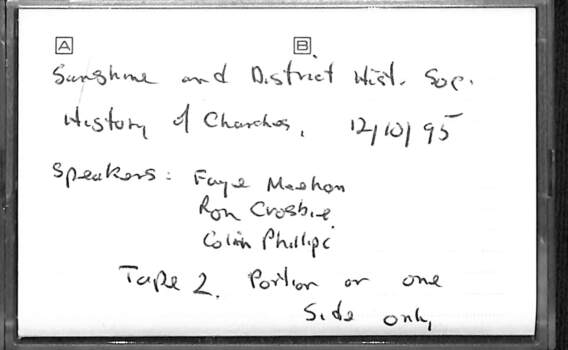 A B
Sunshine and District Hist. Soc.
History of Churches, 12/10/95
Speakers: Faye Meehan
Ron Crosbie
Colin Phillips
Tape 2. Portion on one
Side only,